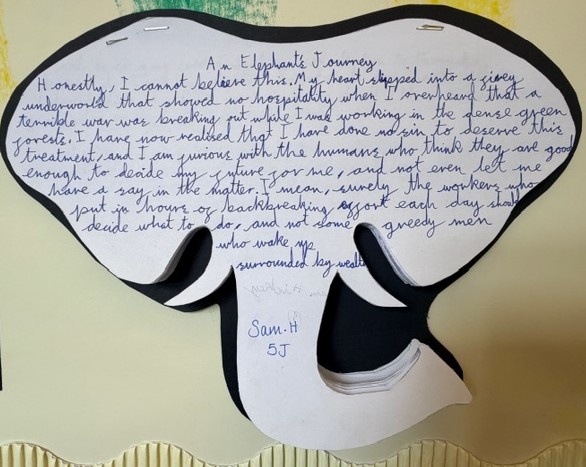 An Elephant's Journey
Honestly, I cannot believe this. My heart slipped into a firey
underworld that showed no hospitality when I overheard that a
terrible war was breaking out while I was working in the dense green
forests. I have now realised that I have done no sin to deserve this
treatment, and I am furious with the humans who think they are good
enough to decide my future for me, and not even let me
have a say in the matter. I mean, surely the workers who
put in hours of backbreaking effort each day should
decide what to do, and not some greedy men
who wake up
surrounded by wealth
Sam.H
5J